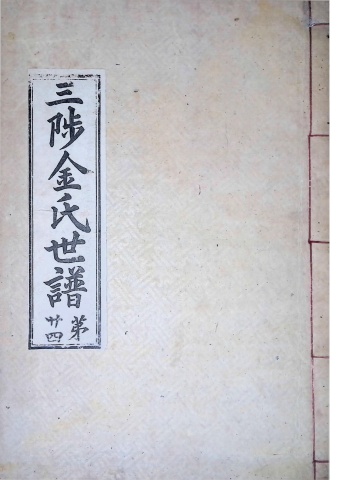 三陟金氏世譜
第廿四